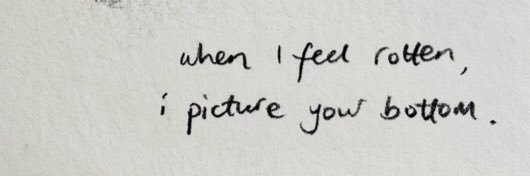 when I feel rotten,
i picture your bottom.